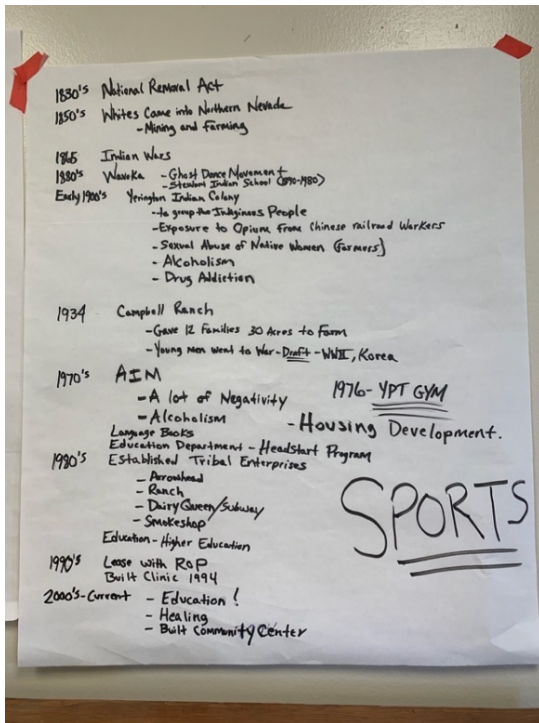 1830's National Removal Act
1850's Whites Came into Northern Nevada
- Mining and Farming
1865 Indian Wars
1880's Wovoka - Ghost Dance Movement
- Stewart Indian School (1890-1980)
Early 1900's Yerington Indian Colony
- to group the Indiginous People
- Exposure to Opium from Chinese railroad Workers
- Sexual Abuse of Native Women (farmers)
- Alcoholism
- Drug Addiction
1934 Campbell Ranch
- Gave 12 Families 30 Acres to Farm
- Young Men went to War - Draft - WWII, Korea
1970's AIM
- A lot of Negativity
- Alcoholism
1976 - YPT GYM
- Housing Development.
Language Books
Education Department - Headstart Program
1980's Established Tribal Enterprises
- Arrowhead
- Ranch
- Dairy Queen/Subway
- Smokeshop
Education - Higher Education
SPORTS
1990's Lease with ROP
Built Clinic 1994
2000's-Current - Education!
- Healing
- Built Community Center